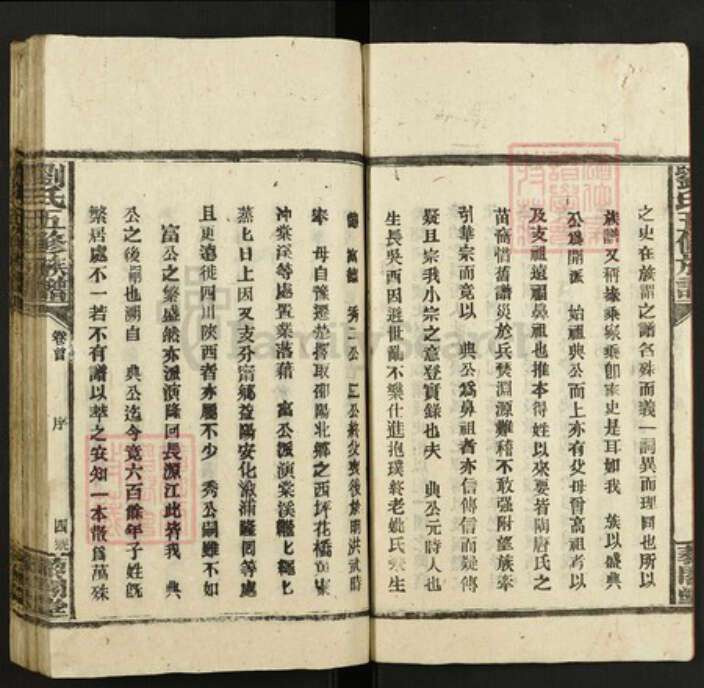 之史在族謂之譜名殊而義一詞異而理同也所以
族譜又稱揍乘家乘卽家史是耳如我 族以盛典
公爲開派 始祖典公而上亦有父母曾高祖考以
及支祖遠祖鼻祖也推本得姓以來要皆陶唐氏之
苗裔惜舊譜災於兵燹淵源難稽不敢强附望族牽
引華宗而竟以 典公爲鼻祖者亦信傳信而疑傳
疑且宗我小宗之意登實錄也夫 典公元時人也
生長吳西因避世亂不樂仕進抱璞終老妣氏 生
德 富德 秀 公 三公於父 後於明洪武時
母自豫遷於 邵陽北鄉之西坪花橋
沖棠溪等處置業落藉 富公派演棠溪 七 七
蒸七日上因又支分甯鄉益陽安化漵浦隆囘等處
且更遠徙四川陝西者亦屬不少 秀公嗣雖不如
富公之繁盛然亦派演隆囘長源江此皆我 典
公之後 也溯自 典公迄今竟六百餘年子姓旣
繁居處不一若不有譜以萃之安知一本散爲萬殊
劉氏五修族譜
卷首
序
四